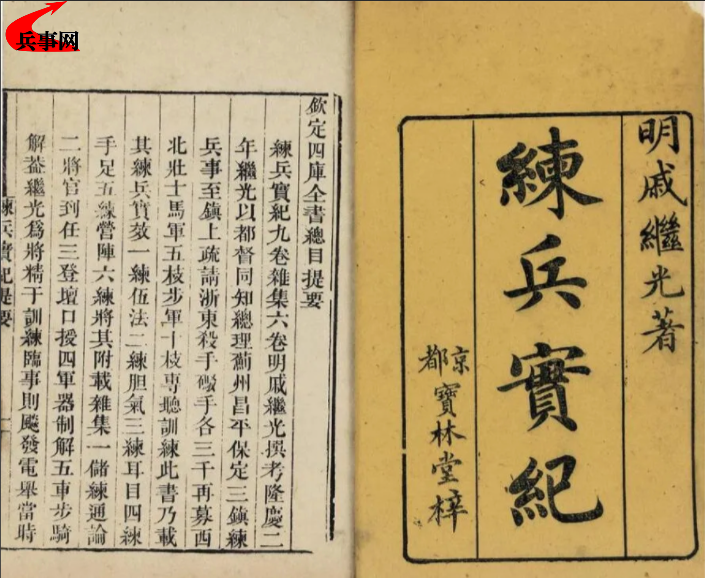 兵事网
明戚繼光著
練兵實紀
京都寶林堂梓
欽定四庫全書總目提要
練兵實紀九卷雜集六卷明戚繼光撰考隆慶二
年繼光以都督同知總理薊州昌平保定三鎮練
兵事至鎮上疏請浙東殺手礮手各三千再募西
北壯士馬軍五枝步軍十枝專聽訓練此書乃載
其練兵實效一練伍法二練胆氣三練耳目四練
手足五練營陣六練將其附載雜集一儲練通論
二將官到任三登壇口授四軍器制解五車步騎
解葢繼光爲將精于訓練臨事則飈發電舉當時
練兵實紀提要